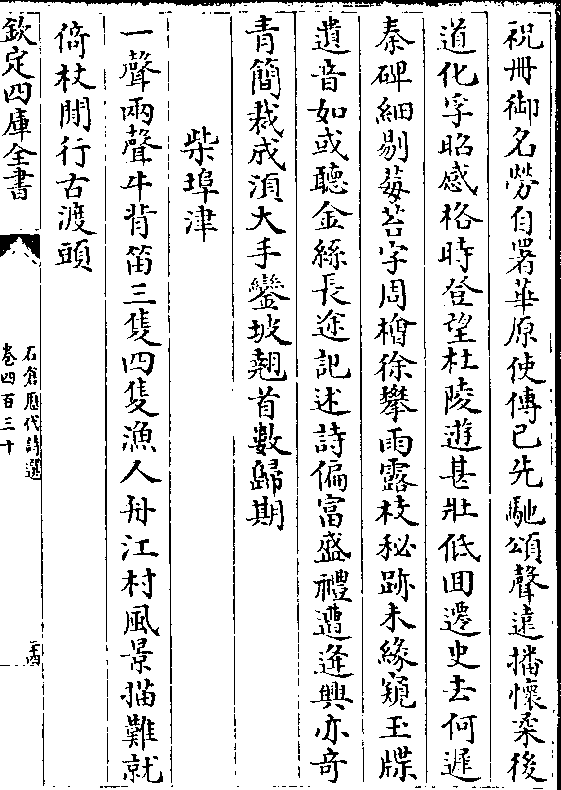 祝冊御名勞自署華原使傳已先馳頌聲遠播懷柔後
道化孚昭感格時登望杜陵遊甚壯低回遷史去何遲
秦碑細剔莓苔字周檜徐攀雨露枝秘跡未緣窺玉牒
遺音如或聽金絲長途記述詩偏富盛禮遭逢興亦奇
青簡裁成須大手鑾坡翹首數歸期
柴埠津
一聲兩聲牛背笛三隻四隻漁人舟江村風景描難就
倚杖閒行古渡頭
欽定四庫全書
石倉歷代詩選
卷四百三十
二十四